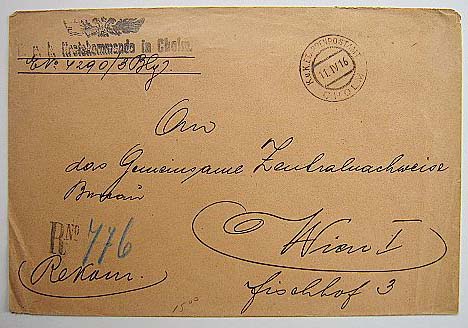 K. u. k. Kreiskommando in Cholm.
E. No 4290/3 Blg.
K.u.K. ETAPPENPOSTAMT
11.IV.16
CHOLM
An
das Gemeinsame Zentralnachweise
Bureau
Wien I
Fischhof 3
R No 776
Rekom.
15 00